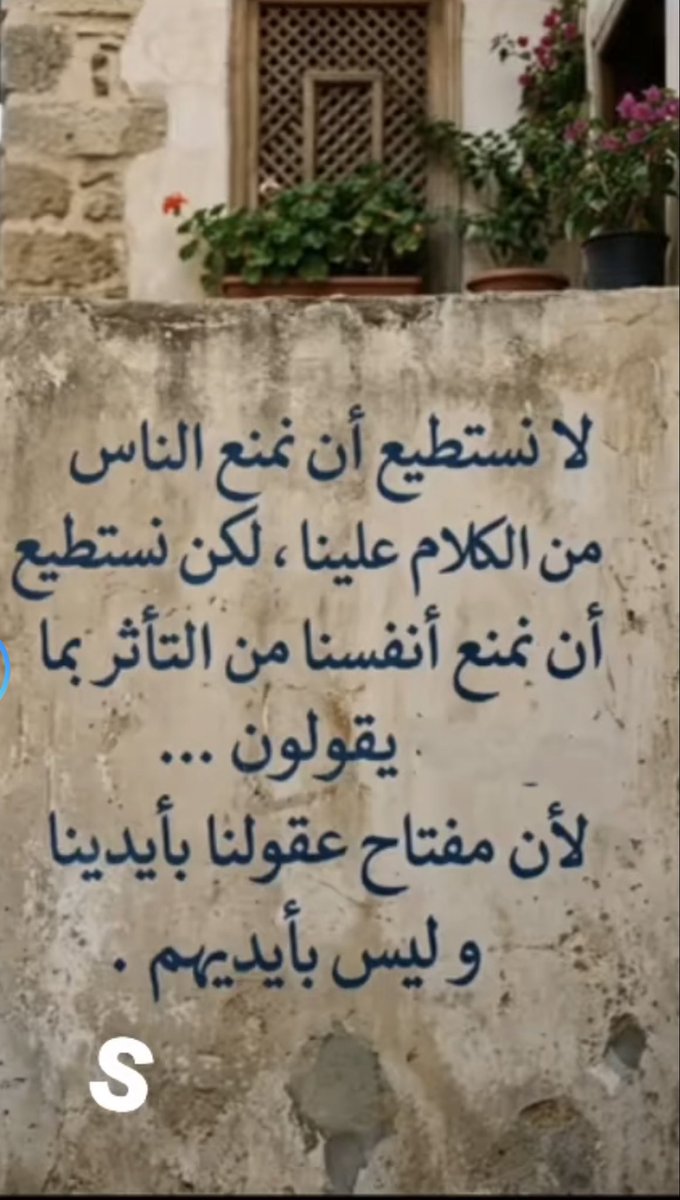 لا نستطيع أن نمنع الناس
من الكلام علينا ، لكن نستطيع
أن نمنع أنفسنا من التأثر بما
يقولون ...
لأن مفتاح عقولنا بأيدينا
و ليس بأيديهم .
S